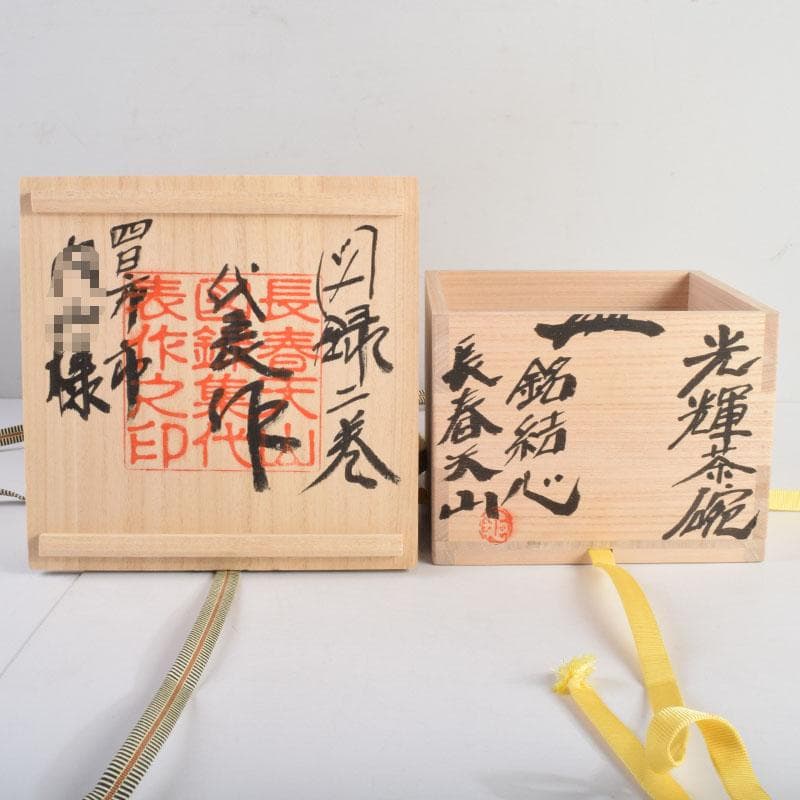 図録二巻
代表作
四日市市
様
長春天山
図録集代
表作之印
光輝茶碗
銘結心
長春天山